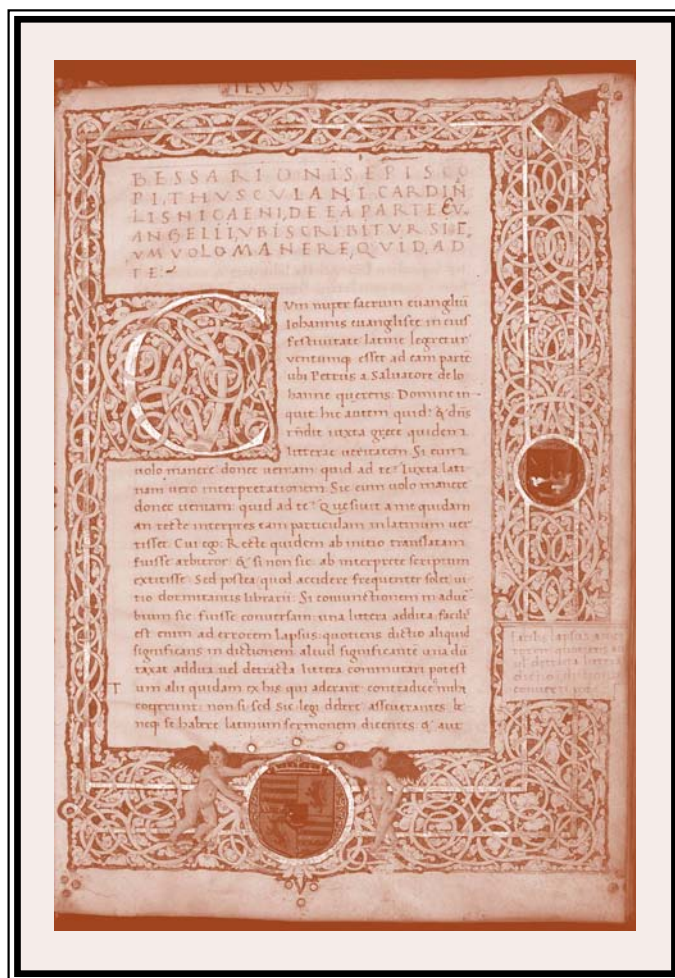 IESVS
BESSARIONIS EPISCO
PI, THVSCVLANI, CARDIN̄
LIS NICAENI, DE EA PARTE EV̄
ANGELII, VBI SCRIBITVR SI E
VM VOLO MANERE, QVID, AD
TE:
CVm nuper sacrum euangliū
Iohannis euangliste in eius
festiuitate latine legretur
uentumq; esset ad eam partē
ubi Petrus a Saluatore de Io
hanne querens: Domine in
quit: hic autem quid? & dn̄s
rn̄dit iuxta grece quidem
litterae ueritatem Si eum
uolo manere donec ueniam quid ad te? Iuxta lati
nam uero interpretationem Sic eum uolo manere
donec ueniam: quid ad te? Quesiuit a me quidam
an recte interpres eam particulam in latinum uer
tisset. Cui ego: Recte quidem ab initio translatam
fuisse arbitror & si non sic ab interprete scriptum
extitisse. Sed postea quod accidere frequenter solet ui
tio dormitantis librarii: Si coniunctionem in aduer
bium sic fuisse conuersam una littera addita: facilis
est enim ad errorem lapsus: quotiens dictio aliquid
significans in dictionem aliud significantē una dū
taxat addita uel detracta littera commutari potest
T
um alii quidam ex his qui aderant contradicē mihi
coeperunt: non si sed sic legi debere asseuerantes
neq; se habere latinum sermonem dicentes & aut
facilis lapsus ad er
rorem quotiens
ul detracta littera
dictio,